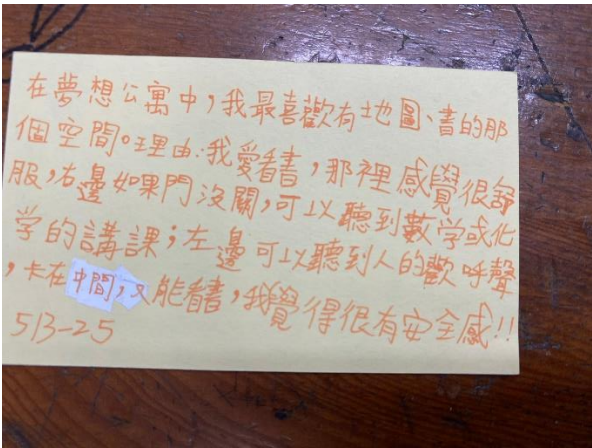 在夢想公寓中，我最喜歡有地圖、書的那
個空間。理由：我愛看書，那裡感覺很舒
服，右邊如果門沒關，可以聽到數学或化
学的講課；左邊可以聽到人的歡呼聲
，卡在中間，又能看書，我覺得很有安全感!!
513-25